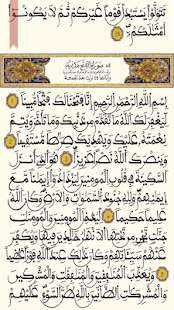 تَتَوَلَّوْا يَسْتَبْدِلْ قَوْمًا غَيْرَكُمْ ثُمَّ لَا يَكُونُوا
أَمْثَالَكُمْ
٤٨ سورة الفتح مدنية
بِسْمِ اللَّهِ الرَّحْمَٰنِ الرَّحِيمِ إِنَّا فَتَحْنَا لَكَ فَتْحًا مُّبِينًا
لِّيَغْفِرَ لَكَ اللَّهُ مَا تَقَدَّمَ مِن ذَنبِكَ وَمَا تَأَخَّرَ وَيُتِمَّ
نِعْمَتَهُ عَلَيْكَ وَيَهْدِيَكَ صِرَاطًا مُّسْتَقِيمًا
وَيَنصُرَكَ اللَّهُ نَصْرًا عَزِيزًا هُوَ الَّذِي أَنزَلَ
السَّكِينَةَ فِي قُلُوبِ الْمُؤْمِنِينَ لِيَزْدَادُوا إِيمَانًا مَّعَ
إِيمَانِهِمْ وَلِلَّهِ جُنُودُ السَّمَاوَاتِ وَالْأَرْضِ وَكَانَ اللَّهُ
عَلِيمًا حَكِيمًا لِّيُدْخِلَ الْمُؤْمِنِينَ وَالْمُؤْمِنَاتِ
جَنَّاتٍ تَجْرِي مِن تَحْتِهَا الْأَنْهَارُ خَالِدِينَ فِيهَا وَيُكَفِّرَ
عَنْهُمْ سَيِّئَاتِهِمْ وَكَانَ ذَٰلِكَ عِندَ اللَّهِ فَوْزًا عَظِيمًا
وَيُعَذِّبَ الْمُنَافِقِينَ وَالْمُنَافِقَاتِ وَالْمُشْرِكِينَ
وَالْمُشْرِكَاتِ الظَّانِّينَ بِاللَّهِ ظَنَّ السَّوْءِ عَلَيْهِمْ